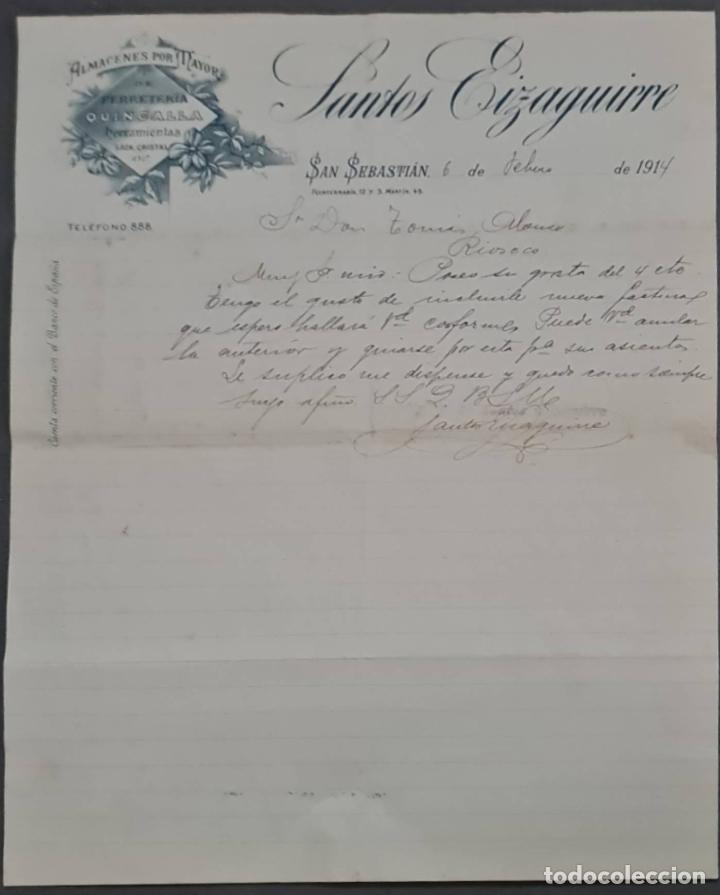 ALMACENES POR MAYOR
DE
FERRETERÍA
QUINCALLA
herramientas
LOZA, CRISTAL
ETC.
Santos Eizaguirre
SAN SEBASTIÁN, 6 de Febrero de 1914
FUENTERRABÍA, 12 Y S. MARTÍN, 45.
TELÉFONO 888
Cuenta corriente con el Banco de España
Sr Don Tomás Alonso
Rioseco
Muy S. mio: Poseo su grata del 4 cte
Tengo el gusto de incluirle nueva factura
que espero hallará Vd conforme. Puede Vd anular
la anterior y guiarse por esta pa sus asientos.
Le suplico me dispense y quedo como siempre
suyo afmo S S Q B S M
Santos Eizaguirre
todocoleccion
todocoleccion.net